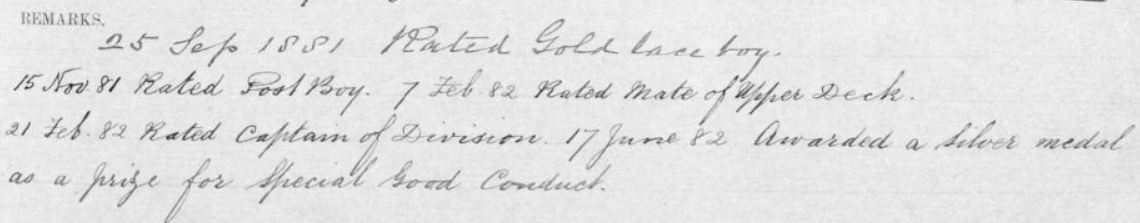 REMARKS.
25 Sep 1881 Rated Gold lace boy.
15 Nov. 81 Rated Post Boy. 7 Feb. 82 Rated Mate of Upper Deck.
21 Feb. 82 Rated Captain of Division. 17 June 82 Awarded a Silver medal
as a prize for Special Good Conduct.